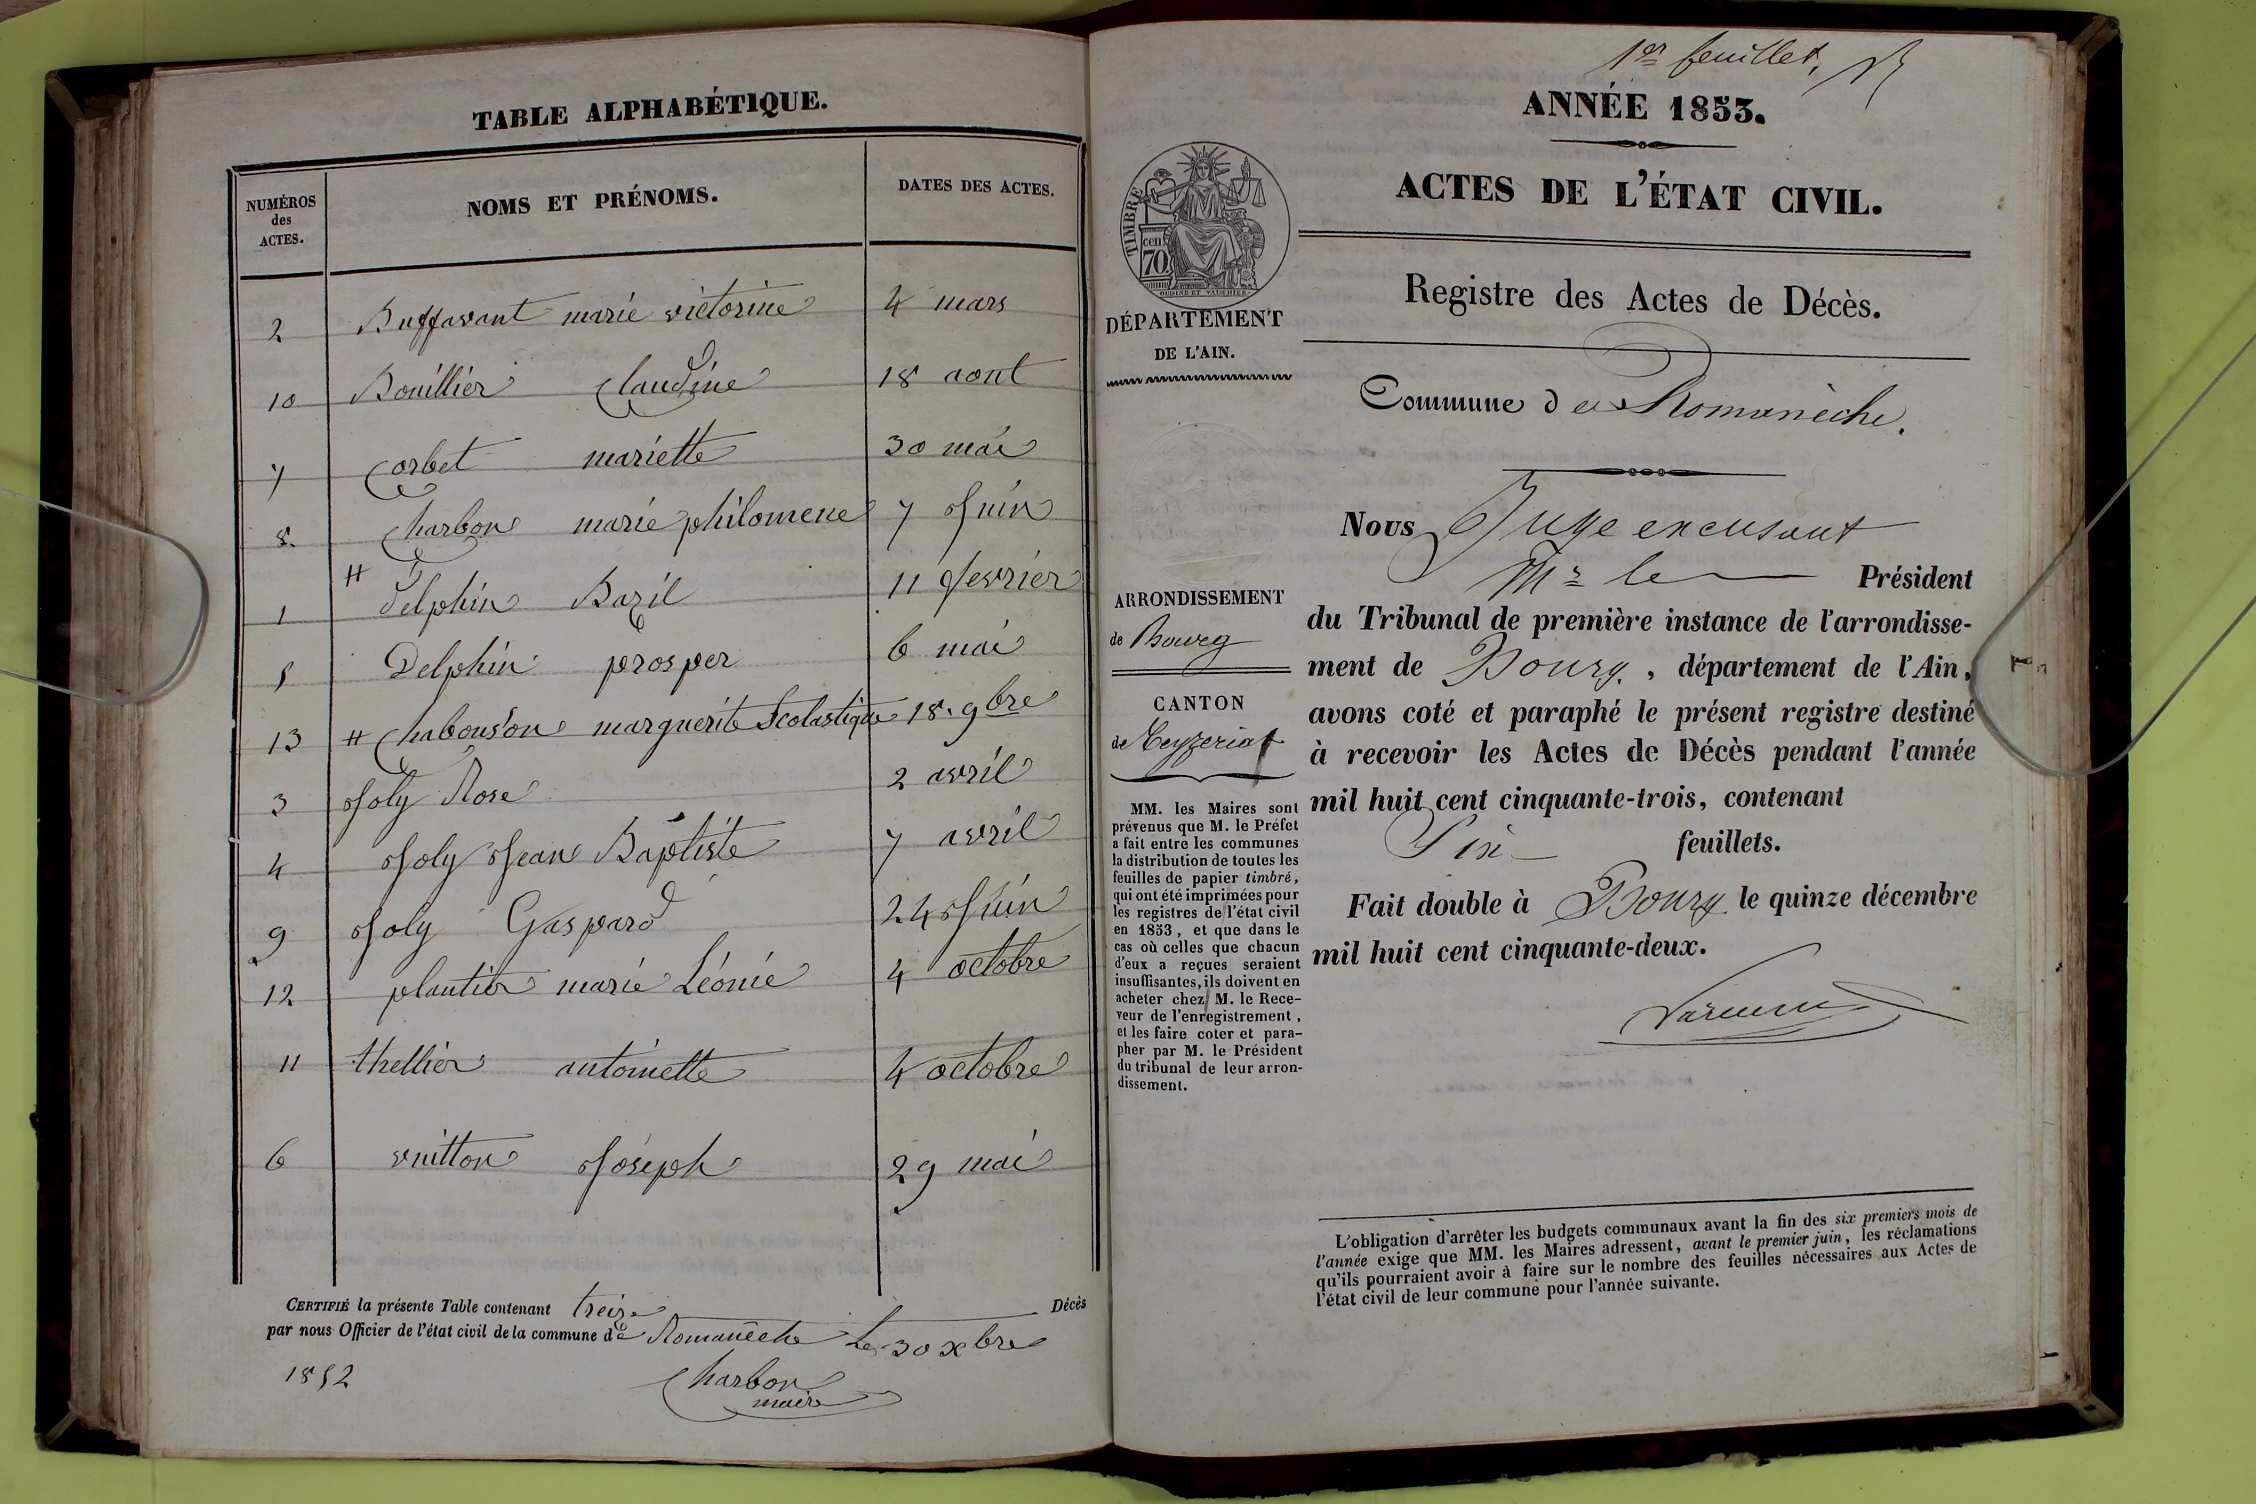 TABLE ALPHABÉTIQUE.
NUMÉROS des ACTES. NOMS ET PRÉNOMS. DATES DES ACTES.
2 Buffavant marie victorine 4 mars
10 Bouillier Claudine 18 aout
7 Corbet mariette 30 mai
8. Charbon marie philomene 7 Juin
1 # Delphin Bazil 11 fevrier
5 Delphin prosper 6 mai
13 # Chabouson marguerite Scolastique 18. 9bre
3 Joly Rose 2 avril
4 Joly Jean Baptiste 7 avril
9 Joly Gaspard 24 Juin
12 plantier marie Léonie 4 octobre
11 thellier antoinette 4 octobre
6 vuitton Joseph 29 mai
CERTIFIÉ la présente Table contenant treize Décès
par nous Officier de l'état civil de la commune de Romanèche Le 30 xbre
1852
Charbon
maire
1er feuillet,
ANNÉE 1853.
ACTES DE L'ÉTAT CIVIL.
Registre des Actes de Décès.
Commune de Romanèche.
TIMBRE
cen
70
OUDINE ET VAUCHIER
DÉPARTEMENT
DE L'AIN.
ARRONDISSEMENT
de Bourg
CANTON
de Ceyzeriat
MM. les Maires sont
prévenus que M. le Préfet
a fait entre les communes
la distribution de toutes les
feuilles de papier timbré,
qui ont été imprimées pour
les registres de l'état civil
en 1853, et que dans le
cas où celles que chacun
d'eux a reçues seraient
insuffisantes, ils doivent en
acheter chez M. le Rece-
veur de l'enregistrement,
et les faire coter et para-
pher par M. le Président
du tribunal de leur arron-
dissement.
Nous Juge excusant
Mr le Président
du Tribunal de première instance de l'arrondisse-
ment de Bourg, département de l'Ain,
avons coté et paraphé le présent registre destiné
à recevoir les Actes de Décès pendant l'année
mil huit cent cinquante-trois, contenant
Six feuillets.
Fait double à Bourg le quinze décembre
mil huit cent cinquante-deux.
L'obligation d'arrêter les budgets communaux avant la fin des six premiers mois de
l'année exige que MM. les Maires adressent, avant le premier juin, les réclamations
qu'ils pourraient avoir à faire sur le nombre des feuilles nécessaires aux Actes de
l'état civil de leur commune pour l'année suivante.